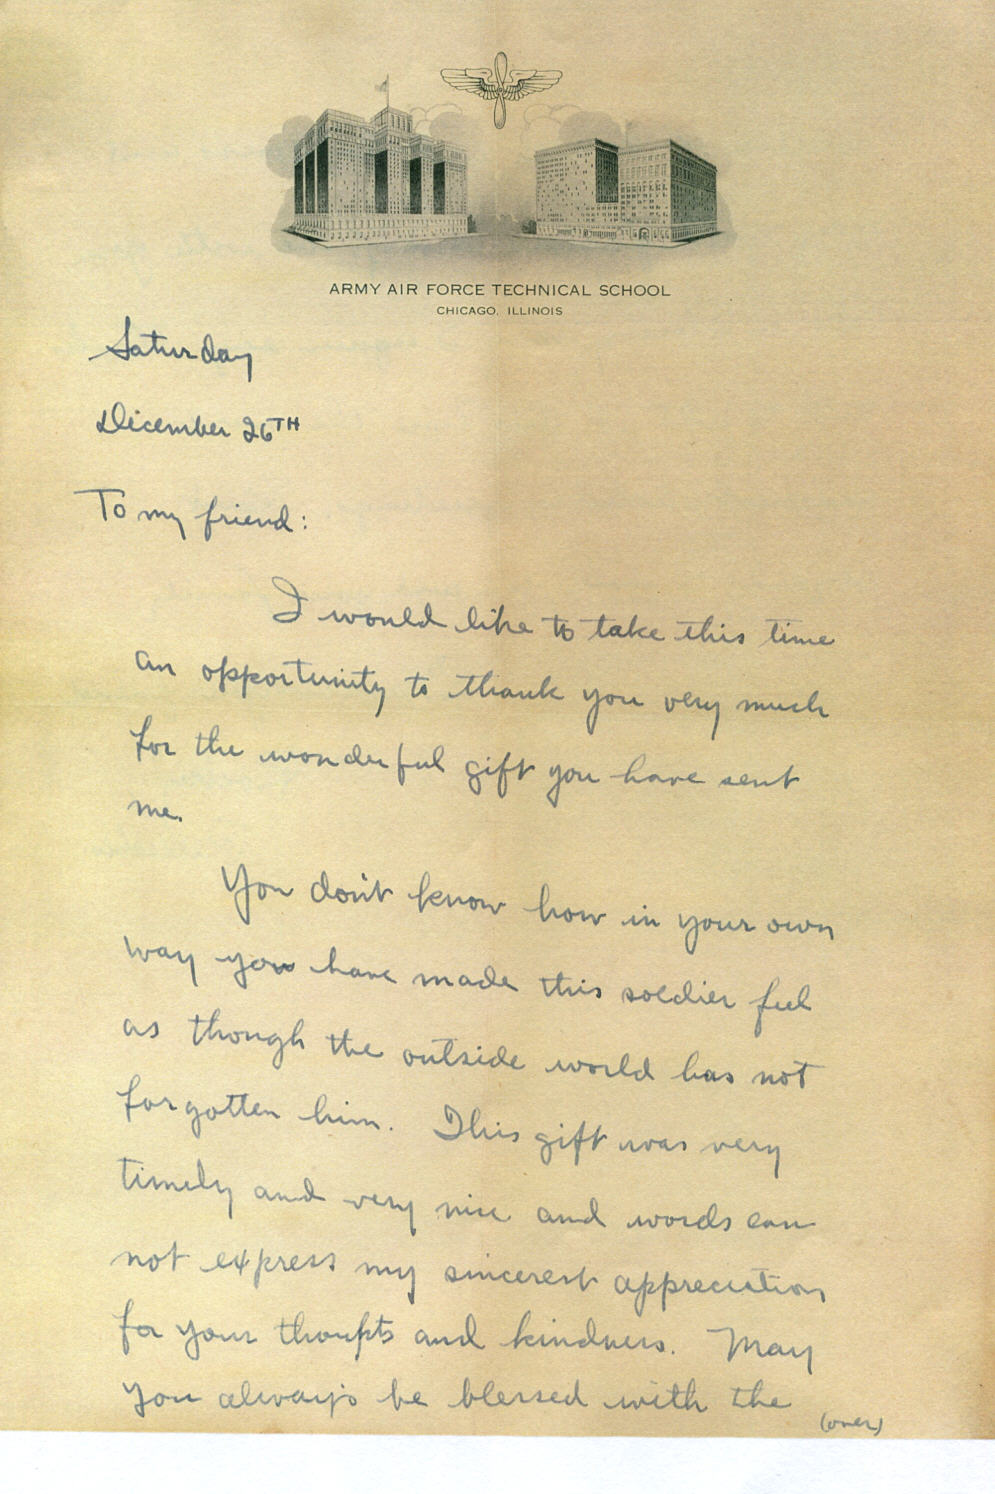 ARMY AIR FORCE TECHNICAL SCHOOL
CHICAGO, ILLINOIS
Saturday
December 26TH
To my friend:
I would like to take this time
an opportunity to thank you very much
for the wonderful gift you have sent
me.
You don't know how in your own
way you have made this soldier feel
as though the outside world has not
forgotten him. This gift was very
timely and very nice and words can
not express my sincerest appreciation
for your thoughts and kindness. May
you always be blessed with the
(over)